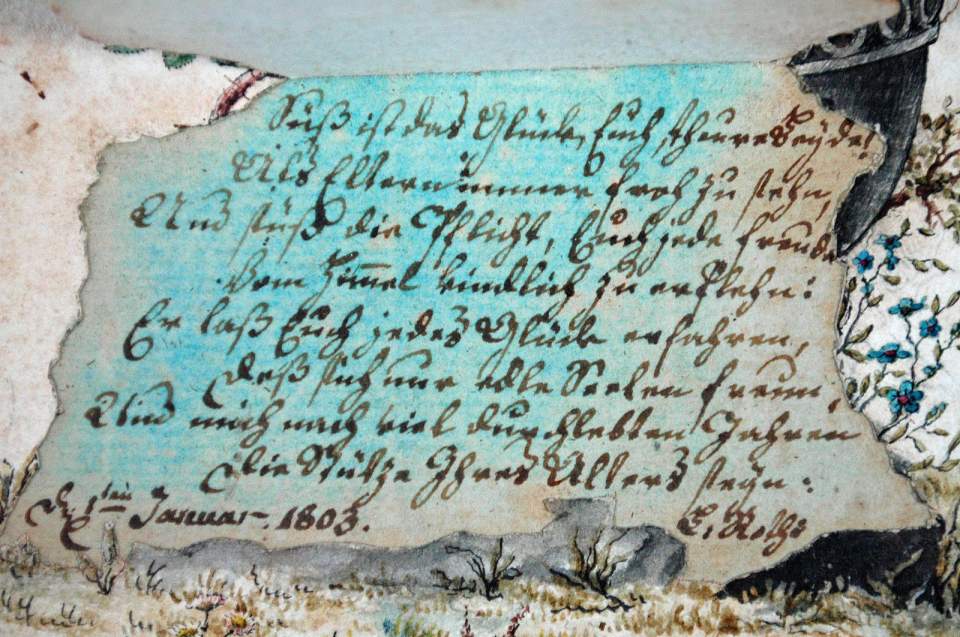 Süß ist das Glück, Euch, theure Beyde!
Als Eltern immer froh zu sehn,
Und süß die Pflicht, Euch jede Freude
Vom Himmel kindlich zu erflehn:
Er laß Euch jedes Glück erfahren,
Deß sich nur edle Seelen freun,
Und mich nach viel durchlebten Jahren
Die Stütze Ihres Alters seyn:
D. 1ten Januar. 1803.
C. Roth: